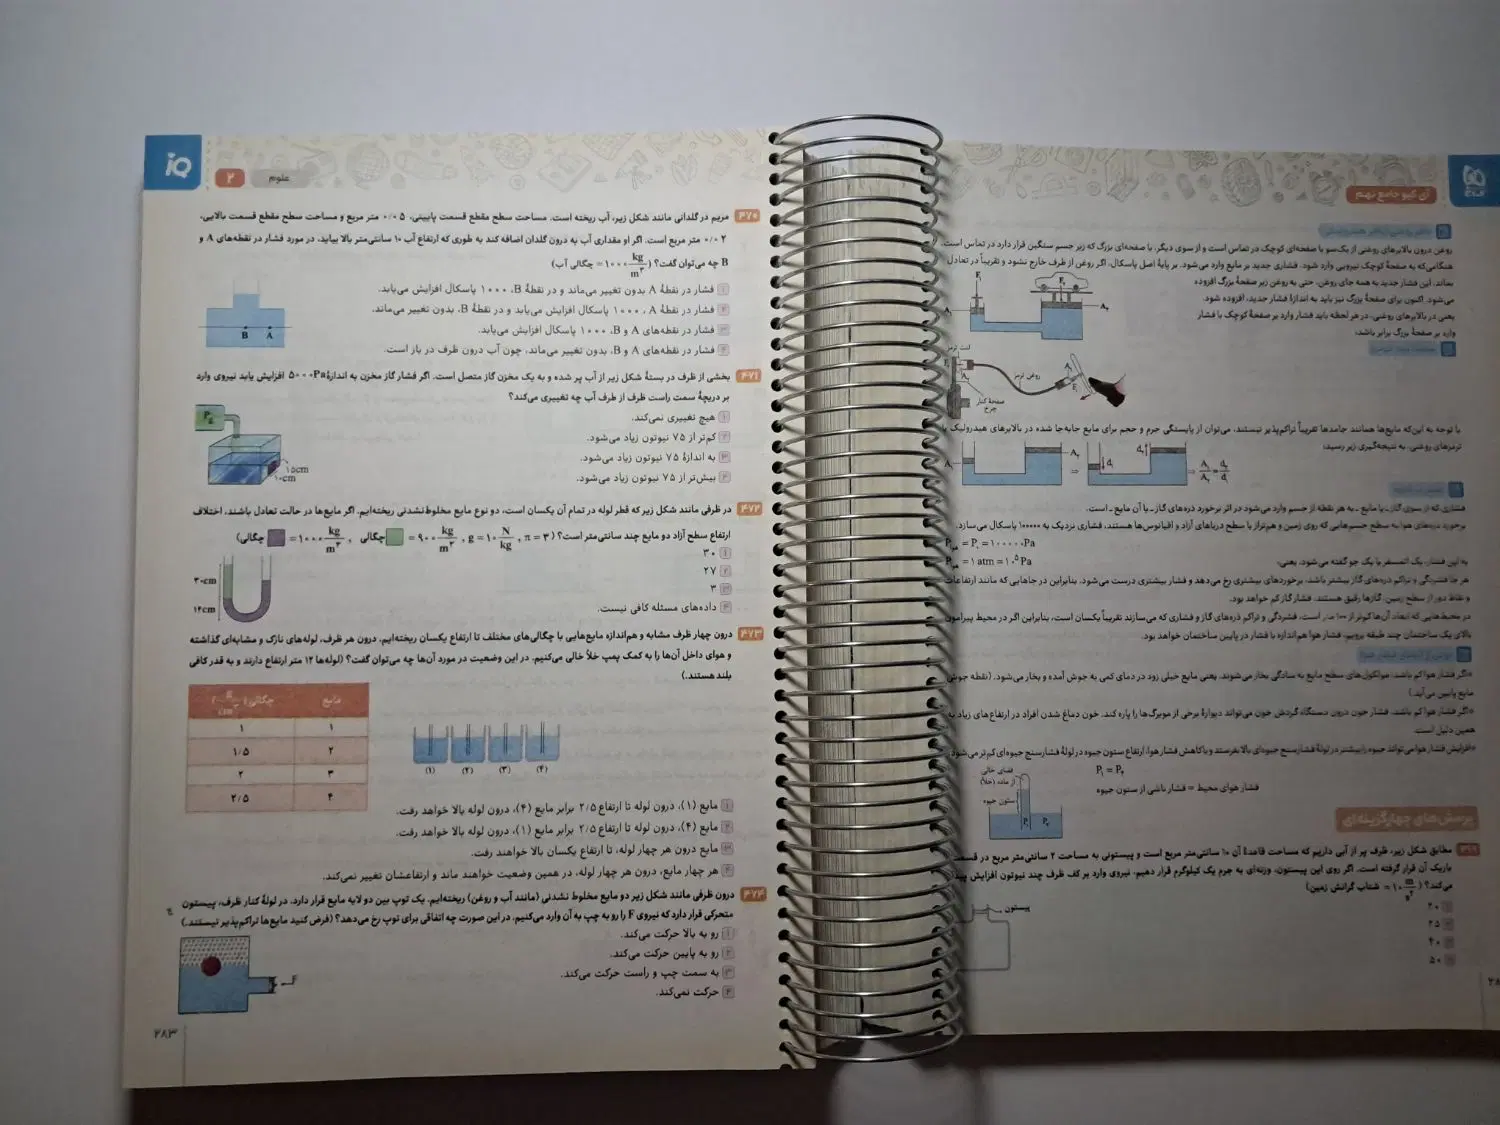 آی کیو جامع نهم
روغن درون بالابرهای روغنی از یک‌سو با صفحه‌ای کوچک در تماس است و از سوی دیگر، با صفحه‌ای بزرگ که زیر جسم سنگین قرار دارد در تماس است.
هنگامی‌که به صفحهٔ کوچک نیرویی وارد شود، فشاری جدید بر مایع وارد می‌شود. بر پایهٔ اصل پاسکال، اگر روغن از ظرف خارج نشود و تقریباً در تعادل
بماند، این فشار جدید به همه جای روغن، حتی به روغن زیر صفحهٔ بزرگ افزوده
می‌شود. اکنون برای صفحهٔ بزرگ نیز باید به اندازهٔ فشار جدید، افزوده شود.
یعنی در بالابرهای روغنی، در هر لحظه باید فشار وارد بر صفحهٔ کوچک با فشار
وارد بر صفحهٔ بزرگ برابر باشد.
لنت ترمز
روغن ترمز
صفحهٔ کنار
چرخ
با توجه به این‌که مایع‌ها همانند جامدها تقریباً تراکم‌پذیر نیستند، می‌توان از پایستگی جرم و حجم برای مایع جابه‌جا شده در بالابرهای هیدرولیک یا
ترمزهای روغنی، به نتیجه‌گیری زیر رسید:
فشاری که از سوی گاز ـ یا مایع ـ به هر نقطه از جسم وارد می‌شود در اثر برخورد ذره‌های گاز ـ یا آن مایع ـ است.
برخورد ذره‌های هوا به سطح جسم‌هایی که روی زمین و هم‌تراز با سطح دریاهای آزاد و اقیانوس‌ها هستند، فشاری نزدیک به ۱۰۰۰۰۰ پاسکال می‌سازد.
P هوا = P۰ = ۱۰۰۰۰۰Pa
به این فشار، یک اتمسفر یا یک جو گفته می‌شود. یعنی:
P هوا = ۱ atm = ۱۰⁵ Pa
هر جا فشردگی و تراکم ذره‌های گاز بیشتر باشد، برخوردهای بیشتری رخ می‌دهد و فشار بیشتری درست می‌شود. بنابراین در جاهایی که مانند ارتفاعات
و نقاط دور از سطح زمین، گازها رقیق هستند، فشار گاز کم خواهد بود.
در محیط‌هایی که ابعاد آن‌ها کم‌تر از ۱۰۰ متر است، فشردگی و تراکم ذره‌های گاز و فشاری که می‌سازند تقریباً یکسان است، بنابراین اگر در محیط پیرامون
بالای یک ساختمان چند طبقه برویم، فشار هوا هم‌اندازه با فشار در پایین ساختمان خواهد بود.
•اگر فشار هوا کم باشد، مولکول‌های سطح مایع به سادگی بخار می‌شوند. یعنی مایع خیلی زود در دمای کمی به جوش آمده و بخار می‌شود. (نقطه جوش
مایع پایین می‌آید.)
•اگر فشار هوا کم باشد، فشار خون درون دستگاه گردش خون می‌تواند دیوارهٔ برخی از مویرگ‌ها را پاره کند. خون دماغ شدن افراد در ارتفاع‌های زیاد به
همین دلیل است.
•افزایش فشار هوا می‌تواند جیوه را بیشتر در لولهٔ فشارسنج جیوه‌ای بالا بفرستد و با کاهش فشار هوا، ارتفاع ستون جیوه در لولهٔ فشارسنج جیوه‌ای کم‌تر می‌شود.
فضای خالی
از ماده (خلأ)
ستون جیوه
P۱ = P۲
فشار هوای محیط = فشار ناشی از ستون جیوه
پرسش‌های چهارگزینه‌ای
۴۶۹ مطابق شکل زیر، ظرف پر از آبی داریم که مساحت قاعدهٔ آن ۱۰ سانتی‌متر مربع است و پیستونی به مساحت ۲ سانتی‌متر مربع در قسمت
باریک آن قرار گرفته است. اگر روی این پیستون، وزنه‌ای به جرم یک کیلوگرم قرار دهیم، نیروی وارد بر کف ظرف چند نیوتون افزایش پیدا
می‌کند؟ (۱۰ m/s² = شتاب گرانش زمین)
پیستون
۱ ۲۰
۲ ۲۵
۳ ۴۰
۴ ۵۰
iQ
علوم ۲
۴۷۰ مریم در گلدانی مانند شکل زیر، آب ریخته است. مساحت سطح مقطع قسمت پایینی، ۰/۰۵ متر مربع و مساحت سطح مقطع قسمت بالایی،
۰/۰۲ متر مربع است. اگر او مقداری آب به درون گلدان اضافه کند به طوری که ارتفاع آب ۱۰ سانتی‌متر بالا بیاید، در مورد فشار در نقطه‌های A و
B چه می‌توان گفت؟ (۱۰۰۰ kg/m³ = چگالی آب)
۱ فشار در نقطهٔ A بدون تغییر می‌ماند و در نقطهٔ B، ۱۰۰۰ پاسکال افزایش می‌یابد.
۲ فشار در نقطهٔ A، ۱۰۰۰ پاسکال افزایش می‌یابد و در نقطهٔ B، بدون تغییر می‌ماند.
۳ فشار در نقطه‌های A و B، ۱۰۰۰ پاسکال افزایش می‌یابد.
۴ فشار در نقطه‌های A و B، بدون تغییر می‌ماند، چون آب درون ظرف در باز است.
B A
۴۷۱ بخشی از ظرف در بستهٔ شکل زیر از آب پر شده و به یک مخزن گاز متصل است. اگر فشار گاز مخزن به اندازهٔ ۵۰۰۰Pa افزایش یابد نیروی وارد
بر دریچهٔ سمت راست ظرف از طرف آب چه تغییری می‌کند؟
۱ هیچ تغییری نمی‌کند.
۲ کم‌تر از ۷۵ نیوتون زیاد می‌شود.
۳ به اندازهٔ ۷۵ نیوتون زیاد می‌شود.
۴ بیش‌تر از ۷۵ نیوتون زیاد می‌شود.
۱۵cm
۱۰cm
۴۷۲ در ظرفی مانند شکل زیر که قطر لوله در تمام آن یکسان است، دو نوع مایع مخلوط‌نشدنی ریخته‌ایم. اگر مایع‌ها در حالت تعادل باشند، اختلاف
ارتفاع سطح آزاد دو مایع چند سانتی‌متر است؟ (π = ۳ , g = ۱۰ N/kg , ۹۰۰ kg/m³ = چگالی , ۱۰۰۰ kg/m³ = چگالی)
۱ ۳۰
۲ ۲۷
۳ ۳
۴ داده‌های مسئله کافی نیست.
۳۰cm
۱۲cm
۴۷۳ درون چهار ظرف مشابه و هم‌اندازه مایع‌هایی با چگالی‌های مختلف تا ارتفاع یکسان ریخته‌ایم. درون هر ظرف، لوله‌های نازک و مشابه‌ای گذاشته
و هوای داخل آن‌ها را به کمک پمپ خلأ خالی می‌کنیم. در این وضعیت در مورد آن‌ها چه می‌توان گفت؟ (لوله‌ها ۱۲ متر ارتفاع دارند و به قدر کافی
بلند هستند.)
مایع چگالی (g/cm³)
۱ ۱
۲ ۱/۵
۳ ۲
۴ ۲/۵
(۱) (۲) (۳) (۴)
۱ مایع (۱)، درون لوله تا ارتفاع ۲/۵ برابر مایع (۴)، درون لوله بالا خواهد رفت.
۲ مایع (۴)، درون لوله تا ارتفاع ۲/۵ برابر مایع (۱)، درون لوله بالا خواهد رفت.
۳ مایع درون هر چهار لوله، تا ارتفاع یکسان بالا خواهند رفت.
۴ هر چهار مایع، درون هر چهار لوله، در همین وضعیت خواهند ماند و ارتفاعشان تغییر نمی‌کند.
۴۷۴ درون ظرفی مانند شکل زیر دو مایع مخلوط نشدنی (مانند آب و روغن) ریخته‌ایم. یک توپ بین دو لایه مایع قرار دارد. در لولهٔ کنار ظرف، پیستون
متحرکی قرار دارد که نیروی F را رو به چپ به آن وارد می‌کنیم. در این صورت چه اتفاقی برای توپ رخ می‌دهد؟ (فرض کنید مایع‌ها تراکم‌پذیر نیستند.)
۱ رو به بالا حرکت می‌کند.
۲ رو به پایین حرکت می‌کند.
۳ به سمت چپ و راست حرکت می‌کند.
۴ حرکت نمی‌کند.
F
۲۸۳